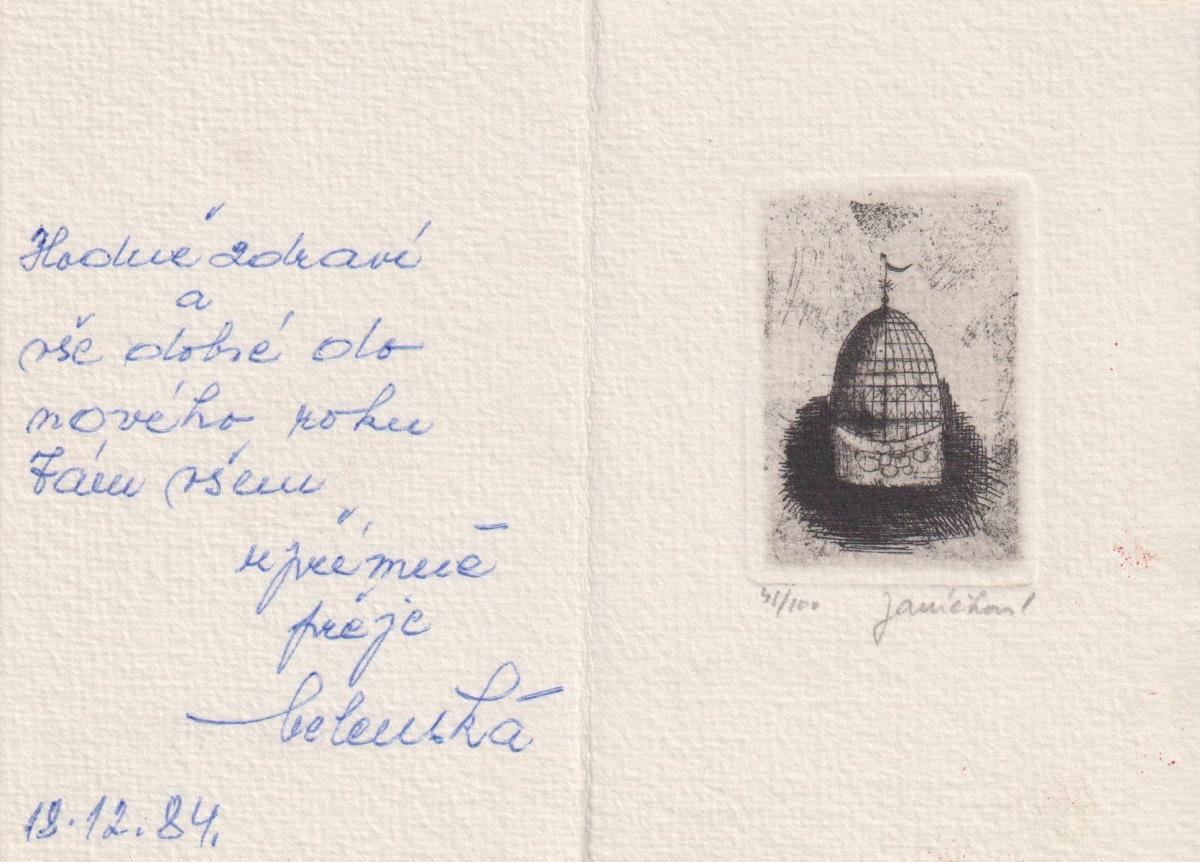 Hodně zdraví
a
vše dobré do
nového roku
Vám všem
upřímně
přeje
18.12.84.
/100